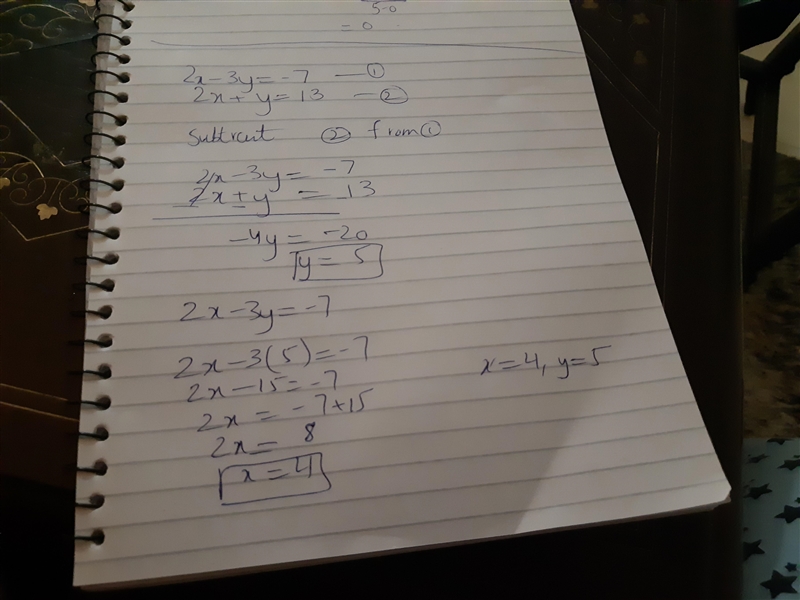 5-0
= 0
2x-3y=-7 —①
2x+y=13 —②
Subtract ② from ①
2x-3y=-7
2x+y=13
-4y=-20
y=5
2x-3y=-7
2x-3(5)=-7
2x-15=-7
2x=-7+15
2x=8
x=4
x=4, y=5